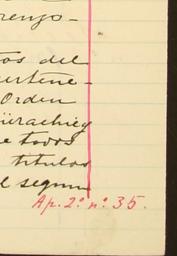 renzo-
tos del
ertene-
Orden
e todos
titulos
el segun
Ap. 2º nº 35.